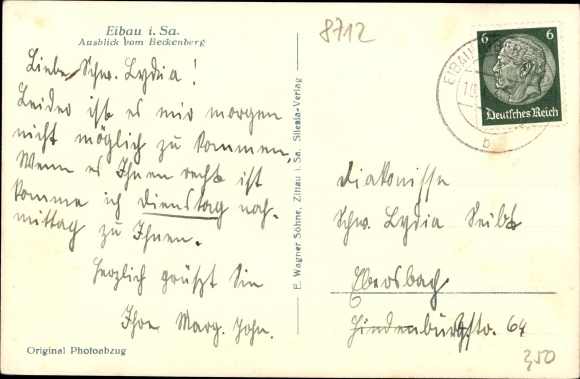 Eibau i. Sa.
Ausblick vom Beckenberg
Liebe Schw. Lydia!
Leider ist es mir morgen
nicht möglich zu kommen.
Wenn es Ihnen recht ist
komme ich dienstag nach-
mittag zu Ihnen.
Herzlich grüßt Sie
Ihre Marg. John.
Original Photoabzug
E. Wagner Söhne, Zittau i. Sa. Silesia-Verlag
8712
6 6
Deutsches Reich
EIBAU
b
Diakonisse
Schw. Lydia Seibt
Ebersbach
Hindenburgstr. 64
3,50